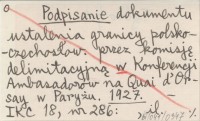 Podpisanie dokumentu
ustalenia granicy polsko-
-czechosłow. przez komisję
delimitacyjną w Konferencji
Ambasadorów na Quai d'Or-
say w Paryżu. 1927. -
IKC 18, nr 286: il.